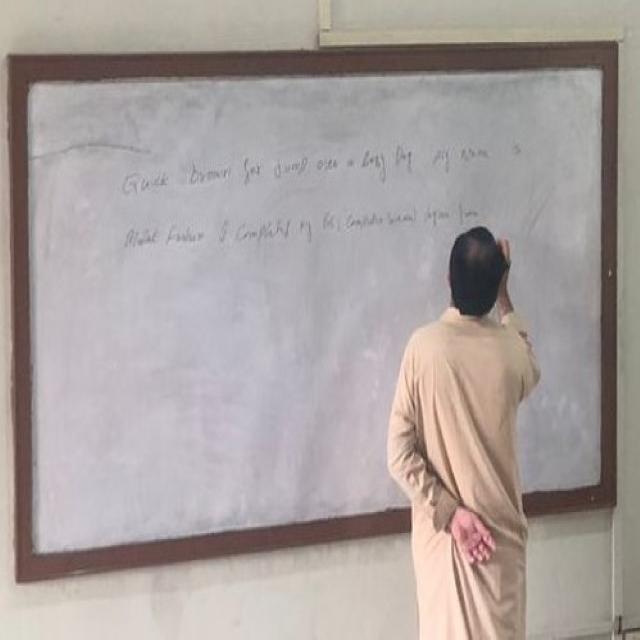 Quick brown fox jump over a lazy dog my name is
Abdul I completed my BS, Computer Science degree from